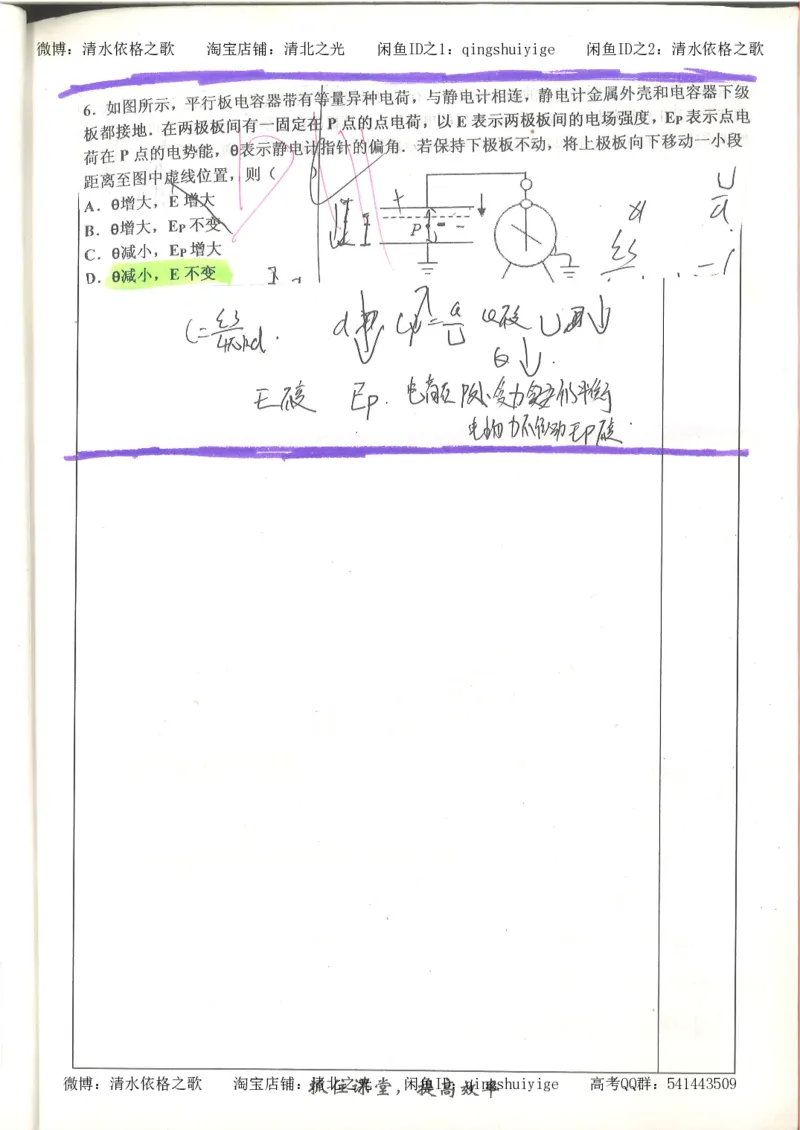 微博：清水依格之歌 淘宝店铺：清北之光 闲鱼ID之1：qingshuiyige 闲鱼ID之2：清水依格之歌
6．如图所示，平行板电容器带有等量异种电荷，与静电计相连，静电计金属外壳和电容器下级
板都接地．在两极板间有一固定在 P 点的点电荷，以 E 表示两极板间的电场强度，EP 表示点电
荷在 P 点的电势能，θ表示静电计指针的偏角．若保持下极板不动，将上极板向下移动一小段
距离至图中虚线位置，则（ ）
A．θ增大，E 增大
B．θ增大，EP 不变
C．θ减小，EP 增大
D．θ减小，E 不变
+
P
U
d
εS
C=εS/4πkd
d↓ C↑=Q/U Q不变 U减↓
θ↓.
E不变 EP.
微博：清水依格之歌 淘宝店铺：清北之光 闲鱼ID：qingshuiyige 高考QQ群：541443509
抓住课堂，提高效率